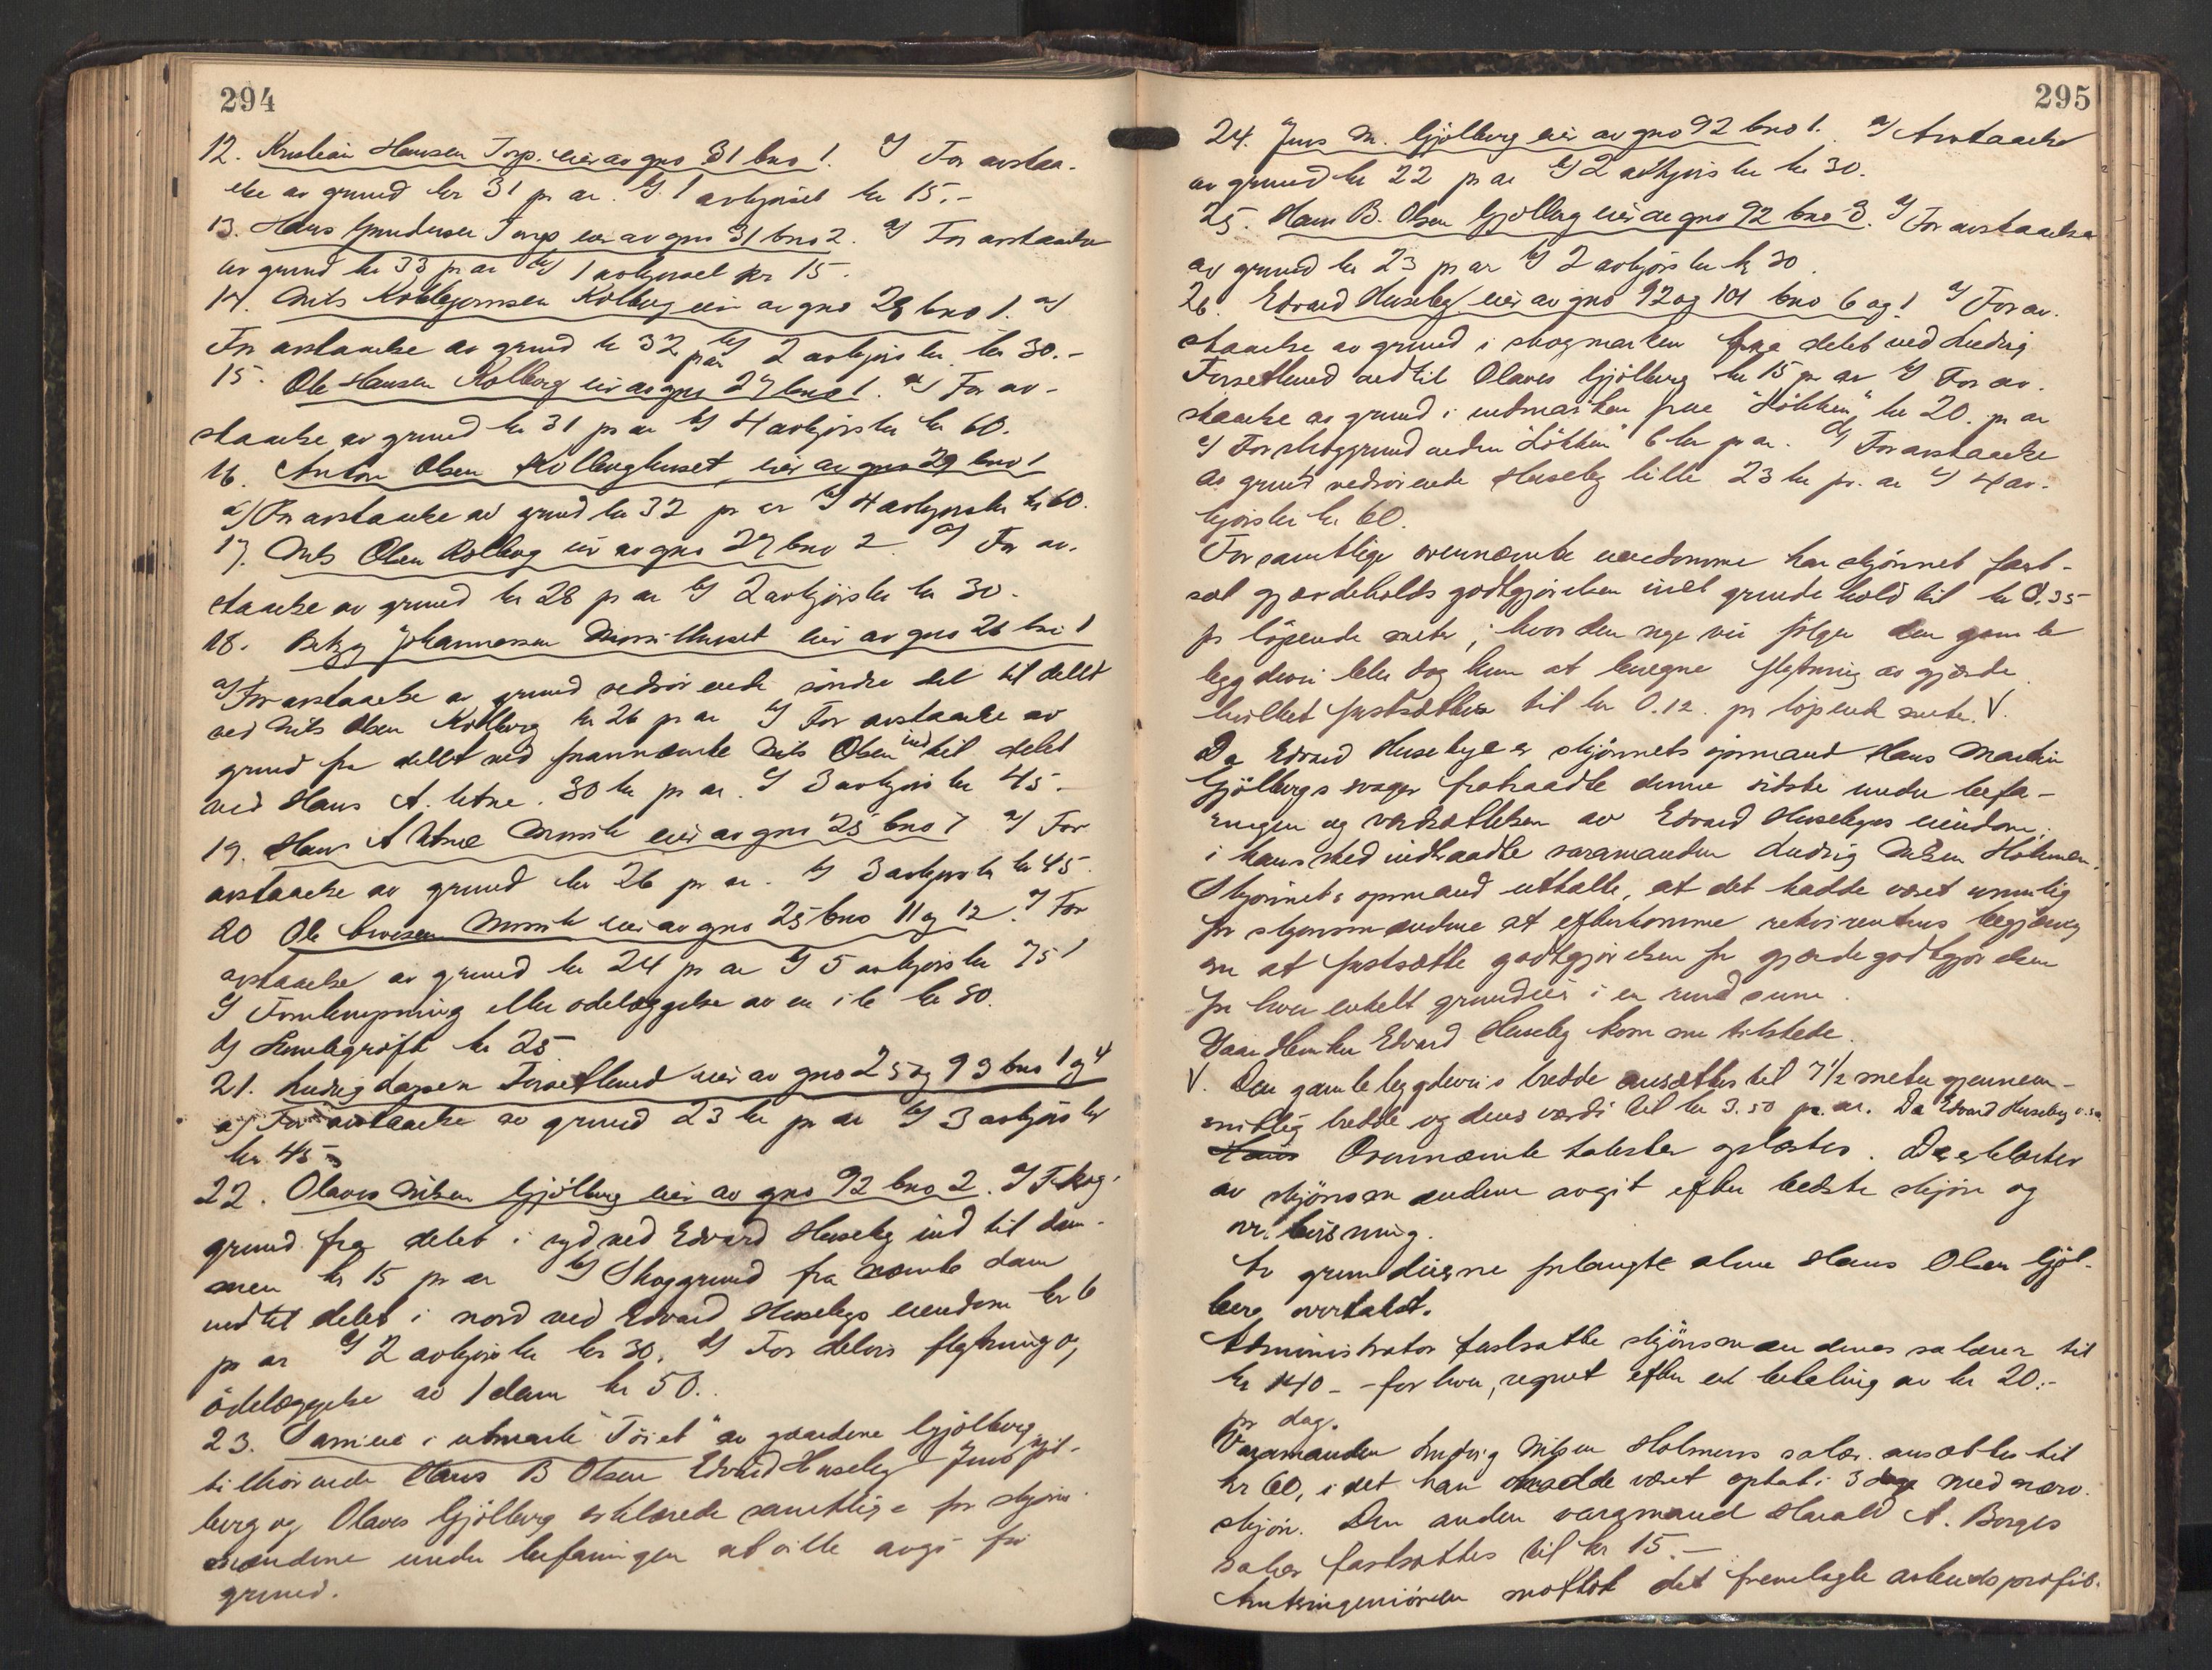 294
12. Kristian Hansen Torp. eier av gno 31 bno 1. a) For avstaa-
else av grund kr 31 pr ar. b) 1 avkjørsel kr 15.-
13. Hans Gundersen Torp eier av gno 31 bno 2. a) For avstaaelse
av grund kr 33 pr ar b) 1 avkjørsel kr 15.
14. Nils Kolbjørnsen Kolberg eier av gno 28 bno 1. a)
For avstaaelse av grund kr 32 pr ar b) 2 avkjørsler kr 30.-
15. Ole Hansen Kolberg eier av gno 27 bno 1. a) For av-
staaelse av grund kr 31 pr ar b) 4 avkjørsler kr 60.
16. Anton Olsen Kolberghuset, eier av gno 29 bno 1
a) For avstaaelse av grund kr 32 pr ar b) 4 avkjørsler kr 60.
17. Nils Olsen Kolberg eier av gno 27 bno 2. a) For av-
staaelse av grund kr 28 pr ar b) 2 avkjørsler kr 30.
18. Johannessen eier av gno 26 bno 1
a) For avstaaelse av grund vedrørende søndre del til dellet
ved Nils Olsen Kolberg kr 26 pr ar b) For avstaaelse av
grund fra dellet ved frannævnte Nils Olsen ind til delet
ved Hans A. Utne. 30 kr pr ar. c) 3 avkjørs kr 45.-
19. Hans A Utne eier av gno 25 bno 7 a) For
avstaaelse av grund kr 26 pr ar. b) 3 avkjørsler kr 45.
20 Ole eier av gno 25 bno 11 og 12. a) For
avstaaelse av grund kr 24 pr ar b) 5 avkjørsler 75
c) Forulempning eller ødelæggelse av en ile kr 80.
d) grøft kr 25.
21. Ludvig Larsen Forsetlund eier av gno 25 og 93 bno 1 og 4
a) For avstaaelse av grund 23 kr pr ar b) 3 avkjørsler
kr. 45
22. Olaves Nilsen Gjølberg eier av gno 92 bno 2. a) F. skog-
grund fra delet i syd ved Edvard Huseby ind til dam-
men kr 15 pr ar b) Skoggrund fra nævnte dam
indtil delet i nord ved Edvard Husebys eiendom kr 6
pr ar c) 2 avkjørsler kr 30. d) For delvis flytning og
ødelæggelse av 1 dam kr 50.
23. Sameie i utmark "Tøiet" av gaardene Gjølberg
tilhørende Hans B Olsen Edvard Huseby Jens Gjøl-
berg og Olaves Gjølberg erklærede samtlige for skjøns-
mændene under befaringen at ville avgi fri
grund.
295
24. Jens M. Gjølberg eier av gno 92 bno 1. a) Avstaaelse
av grund kr 22 pr ar b) 2 avkjørsler kr 30.
25. Hans B. Olsen Gjølberg eier av gno 92 bno 3. a) For avstaaelse
av grund kr 23 pr ar b) 2 avkjørsler kr 30.
26. Edvard Huseby eier av gno 92 og 101 bno 6 og 1 a) For av-
staaelse av grund i skogmarken fra delet ved Ludvig
Forsetlund ned til Olaves Gjølberg kr 15 pr ar b) For av-
staaelse av grund i utmarken fra "Løkken" kr 20. pr ar
c) For skoggrund neden "Løkken" 6 kr pr ar. d) For avstaaelse
av grund vedrørende Huseby lille 23 kr pr. ar e) 4 av-
kjørsler kr 60.
For samtlige ovennævnte eiendomme har skjønnet fast-
sat gjærdeholds godtgjørelsen inkl grinde hold til kr 0.35
pr løpende meter; hvor den nye vei følger den gamle
bygdevei blir dog kun at beregne flytning av gjærde
hvilket fastsættes til kr 0.12. pr løpende meter. V.
Da Edvard Husebye er skjønnets opmand Hans Martin
Gjølbergs svoger fratraadte denne sidste under befa-
ringen og værdsættelsen av Edvard Husebyes eiendom;
i hans sted indtraadte varamanden Ludvig Nilsen Holmen.
Skjønnets opmand uttalte, at det hadde været umulig
for skjønsmændene at efterkomme rekvirentens begjæring
om at fastsætte godtgjørelsen for gjærdegodtgjørelsen
for hver enkelt grundeier i en rund sum.
Edvard Huseby kom nu tilstede.
V. Den gamle bygdeveis bredde ansættes til 7 1/2 meter gjennem-
snitlig bredde og dens værdi til kr 3.50 pr. ar. Da Edvard Huseby
Hans Ovennævnte takster oplæstes. De erklærtes
av skjønsmændene avgit efter bedste skjøn og
overbevisning.
Av grundeierne forlangte alene Hans Olsen Gjøl-
berg overtakst.
Administrator fastsatte skjønsmændenes salærer til
kr 140 - for hver, regnet efter en betaling av kr 20.-
pr dag.
Varamanden Ludvig Nilsen Holmens salær ansættes til
kr 60, idet han hadde været optat i 3 dage med nærv.
skjøn. Den anden varamand Harald A. Borges
salær fastsættes til kr 15.-
Amtsingeniøren mottok det fremlagte arbeidsprofil.